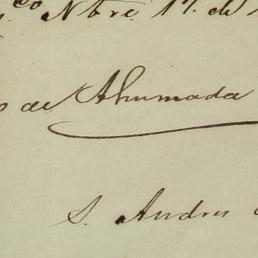 co Nbre 17. de
de Ahumada
S. Andres